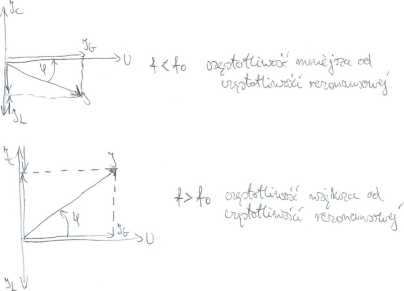 I_C
I_G
U
φ
I
I_L
f < f₀ częstotliwość mniejsza od
częstotliwości rezonansowej
I_C
I
I_G
U
φ
I_L
f > f₀ częstotliwość większa od
częstotliwości rezonansowej